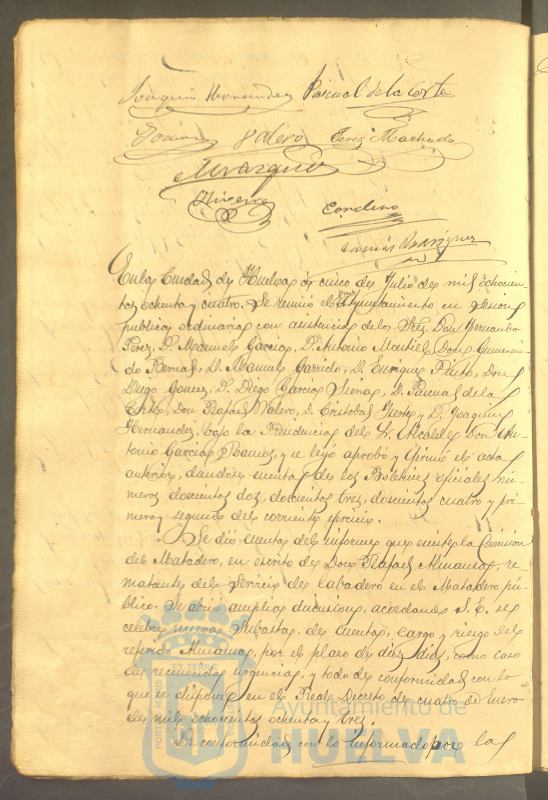 Joaquin Hernandez Pascual de la Corte
Valero Perez Machado
Marquez
Cordero
Rodriguez
En la Ciudad de Huelva á cinco de Julio de mil ochocien-
tos ochenta y cuatro. Se reunió el Ayuntamiento en sesion
publica ordinaria con asistencia de los Sres. Don Fernando
Perez, D. Manuel Garcia, D. Antonio Don Gumersin-
do Bernal, D. Manuel Garrido, D. Enrique Don
Diego Gomez, D. Diego Garcia D. Pascual de la
Corte, Don Rafael Valero, D. Cristobal y D. Joaquin
Hernandez, bajo la Presidencia del Sr. Alcalde Don An-
tonio Garcia Ramos, y se leyó aprobó y firmó el acta
anterior, dandose cuenta de los Boletines oficiales nú-
meros doscientos dos, doscientos tres, doscientos cuatro y pri-
mero y segundo del corriente ejercicio.
Se dió cuenta del informe que emite la Comision
del Matadero, en escrito de Don Rafael re-
matante del servicio de labadero en el Matadero pú-
blico. Se abrió amplia discusion, acordando S. E. se
celebre nueva subasta, de cuenta, cargo y riesgo del
referido por el plazo de diez dias, como caso
de reconocida urgencia, y todo de conformidad con lo
que se dispone en el Real Decreto de cuatro de Enero
de mil ochocientos ochenta y tres.
De conformidad con lo informado por las
PORTUS MARIS ET TERRE CUSTODIA
Ayuntamiento de
HUELVA